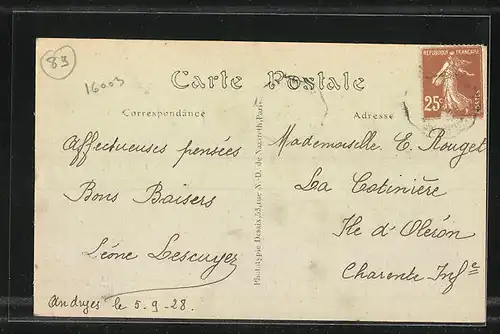 83
16003
Carte Postale
Correspondance
Adresse
RÉPUBLIQUE FRANÇAISE
25c
POSTES
Affectueuses pensées
Bons Baisers
Léone Lescuyez
Andryes le 5-9-28.
Phototypie Desaix, 53, rue N.-D. de Nazareth, Paris
Mademoiselle E. Rouget
La Cotinière
Ile d'Oléron
Charente Infe